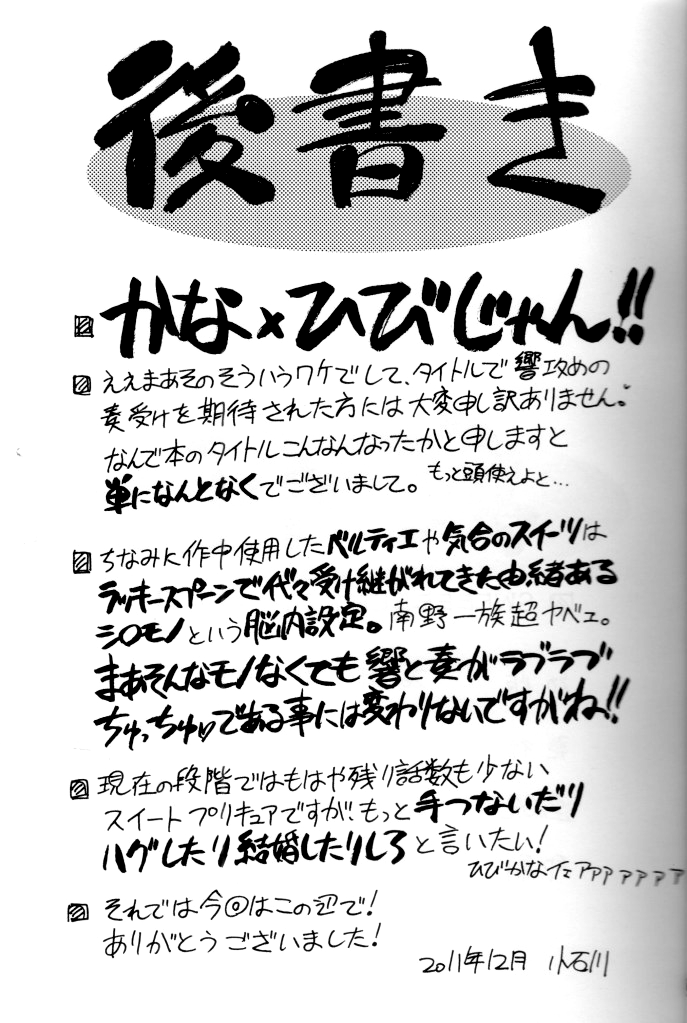 後書き
かな×ひびじゃん!!
ええまあそのそういうワケでして、タイトルで響攻めの
奏受けを期待された方には大変申し訳ありません。
なんで本のタイトルこんなんなったかと申しますと
単になんとなくでございまして。 もっと頭使えよと…
ちなみに作中使用したベルティエや気合のスイーツは
ラッキースプーンで代々受け継がれてきた由緒ある
シロモノという脳内設定。南野一族超ヤベェ。
まあそんなモノなくても響と奏がラブラブ
ちゅっちゅッである事には変わりないですがね!!
現在の段階ではもはや残り話数も少ない
スイートプリキュアですが、もっと手つないだり
ハグしたり結婚したりしろと言いたい!
ひびかなイェアァァァァァァ
それでは今回はこの辺で!
ありがとうございました!
2011年12月 小石川